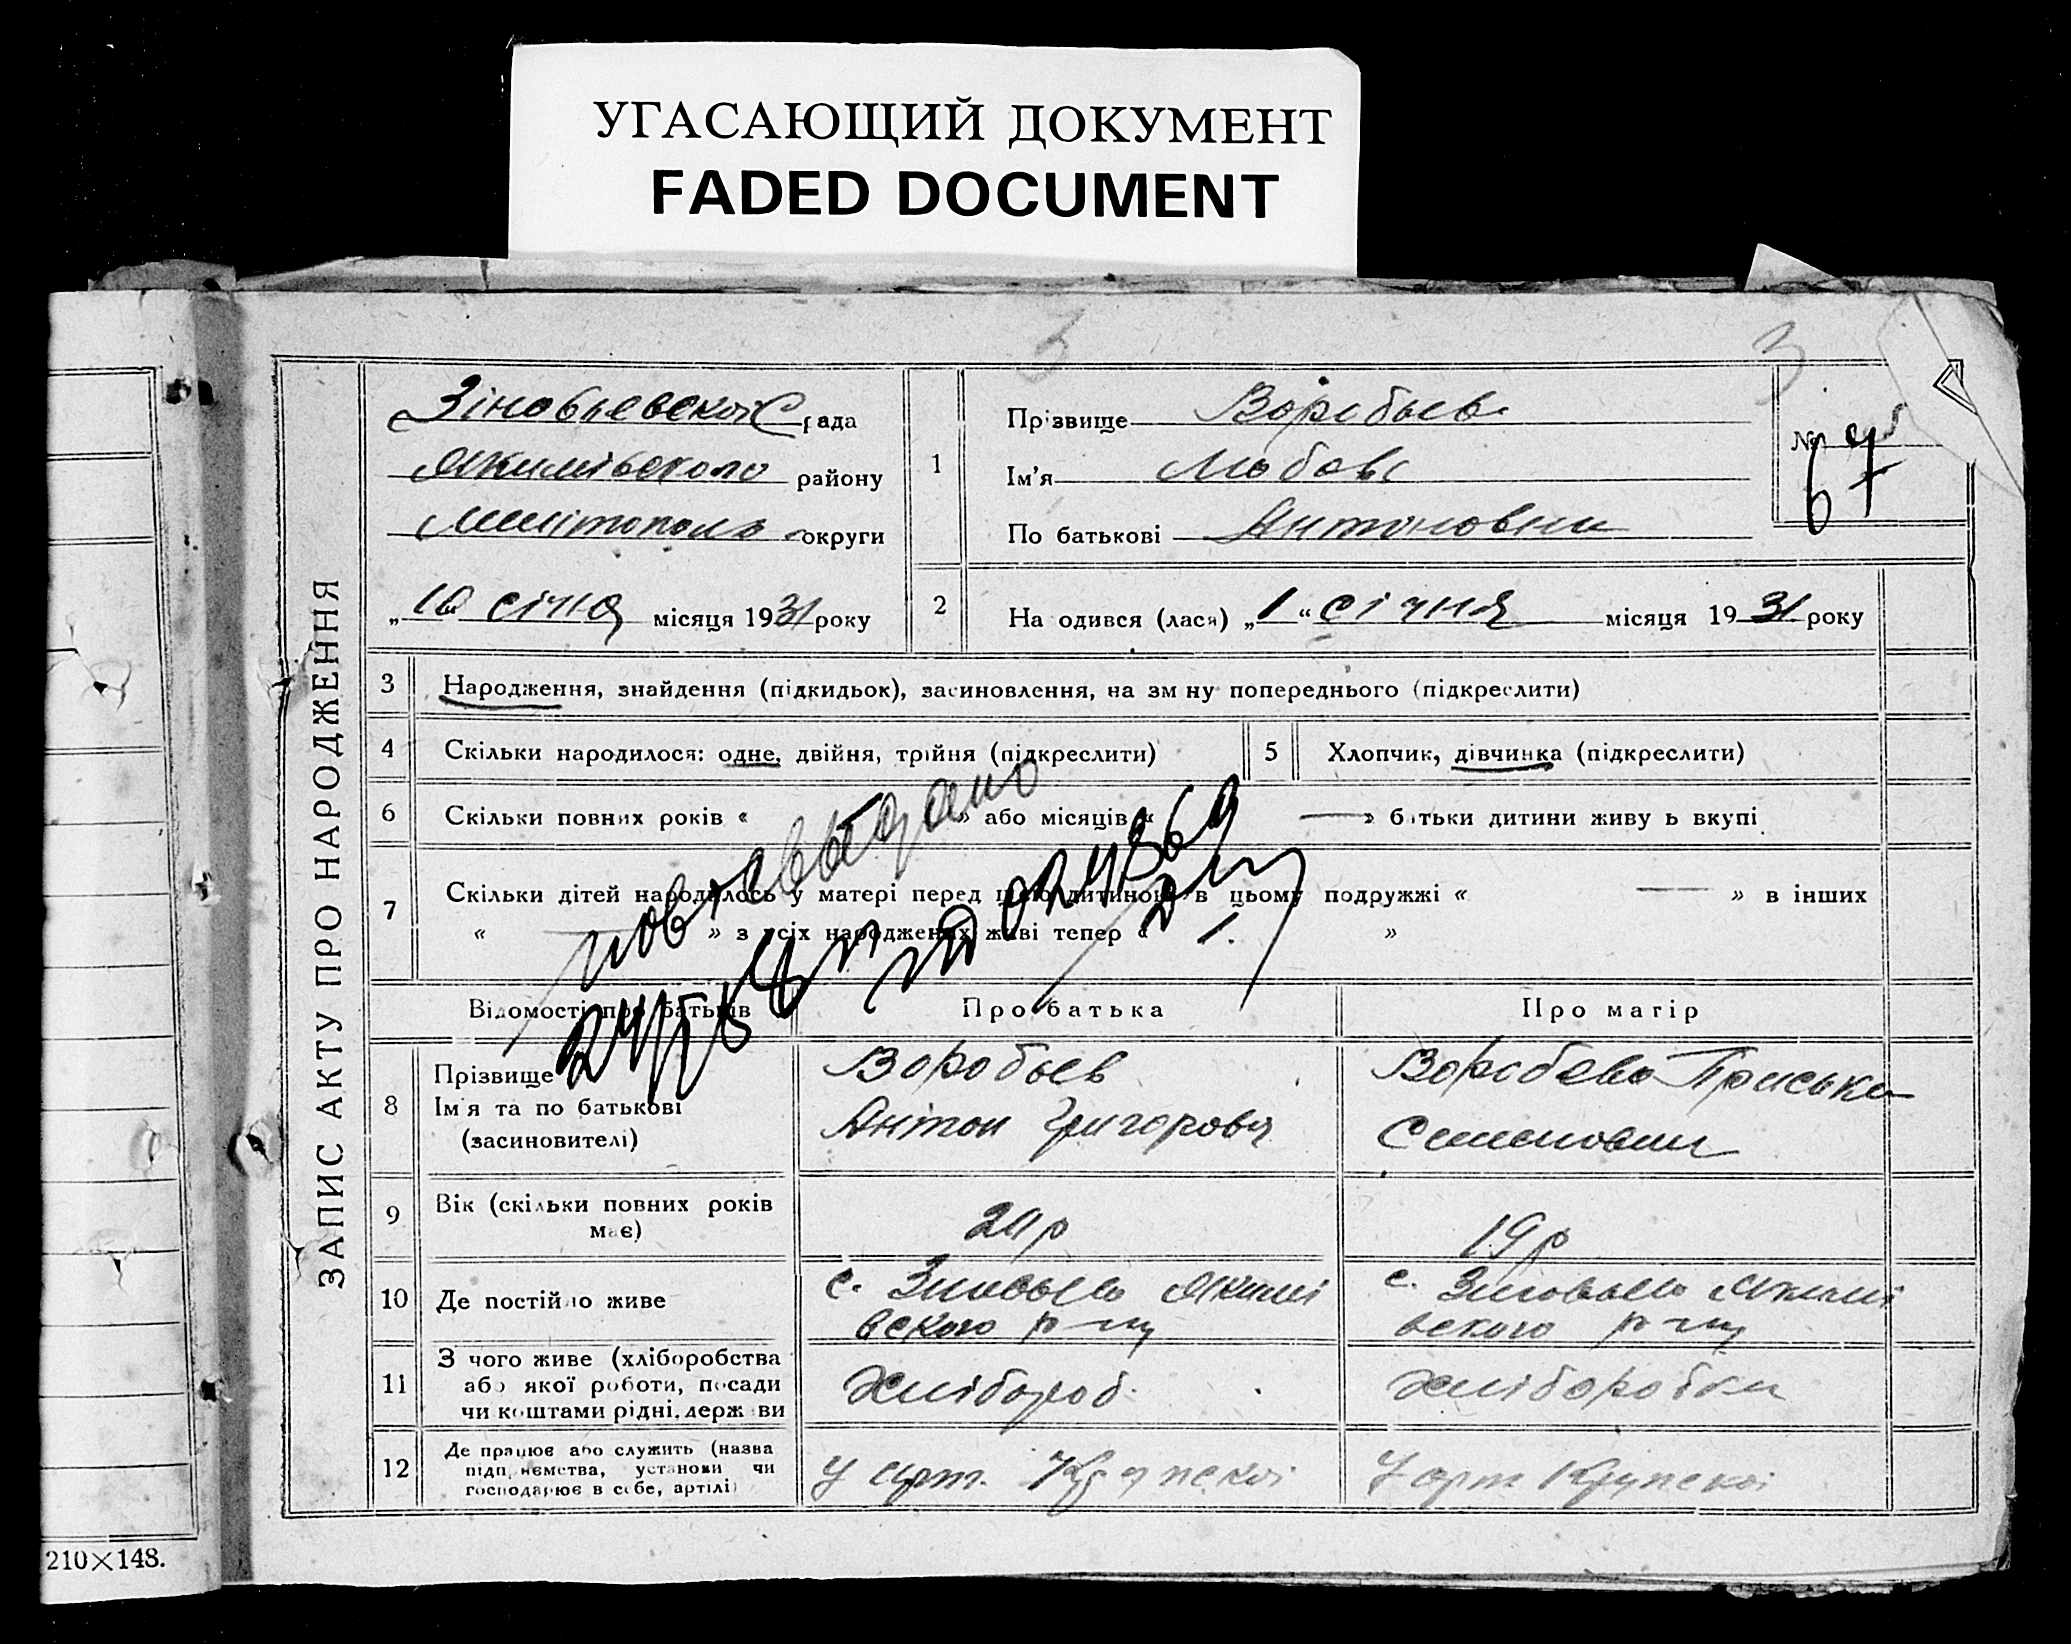 УГАСАЮЩИЙ ДОКУМЕНТ
FADED DOCUMENT
3 3
ЗАПИС АКТУ ПРО НАРОДЖЕННЯ
Зіновьевской С рада
Якимівского району
округи
„10 січня місяця 1931 року
1
Прізвище Воробьев
Ім'я Любовь
По батькові Антоновна
№
67
2 На одився (лася) „1“ січня місяця 1931 року
3 Народження, знайдення (підкидьок), засиновлення, на зм ну попереднього (підкреслити)
4 Скільки народилося: одне, двійня, трійня (підкреслити)
5 Хлопчик, дівчинка (підкреслити)
6 Скільки повних років « » або місяців « — » батьки дитини живу ь вкупі
7 Скільки дітей народилось у матері перед цією дитиною в цьому подружжі « — » в інших
« — » з усіх народжених живі тепер « »
Відомості про батьків Про батька Про матір
8 Прізвище
Ім'я та по батькові
(засиновителі)
Воробьев
Антон Григоров
Воробева Приська
Семеновна
9 Вік (скільки повних років має)
р
19 р
10 Де постійно живе
с. Зиновьево Якимі
вского р-ну
с. Зиновьево Якимі
вского р-ну
11 З чого живе (хліборобства
або якої роботи, посади
чи коштами рідні, держави
Хлібороб
Хліборобка
12 Де працює або служить (назва
підприємства, установи чи
господарює в себе, артілі)
У арт. Крупскоі
У арт Крупскоі
210×148.